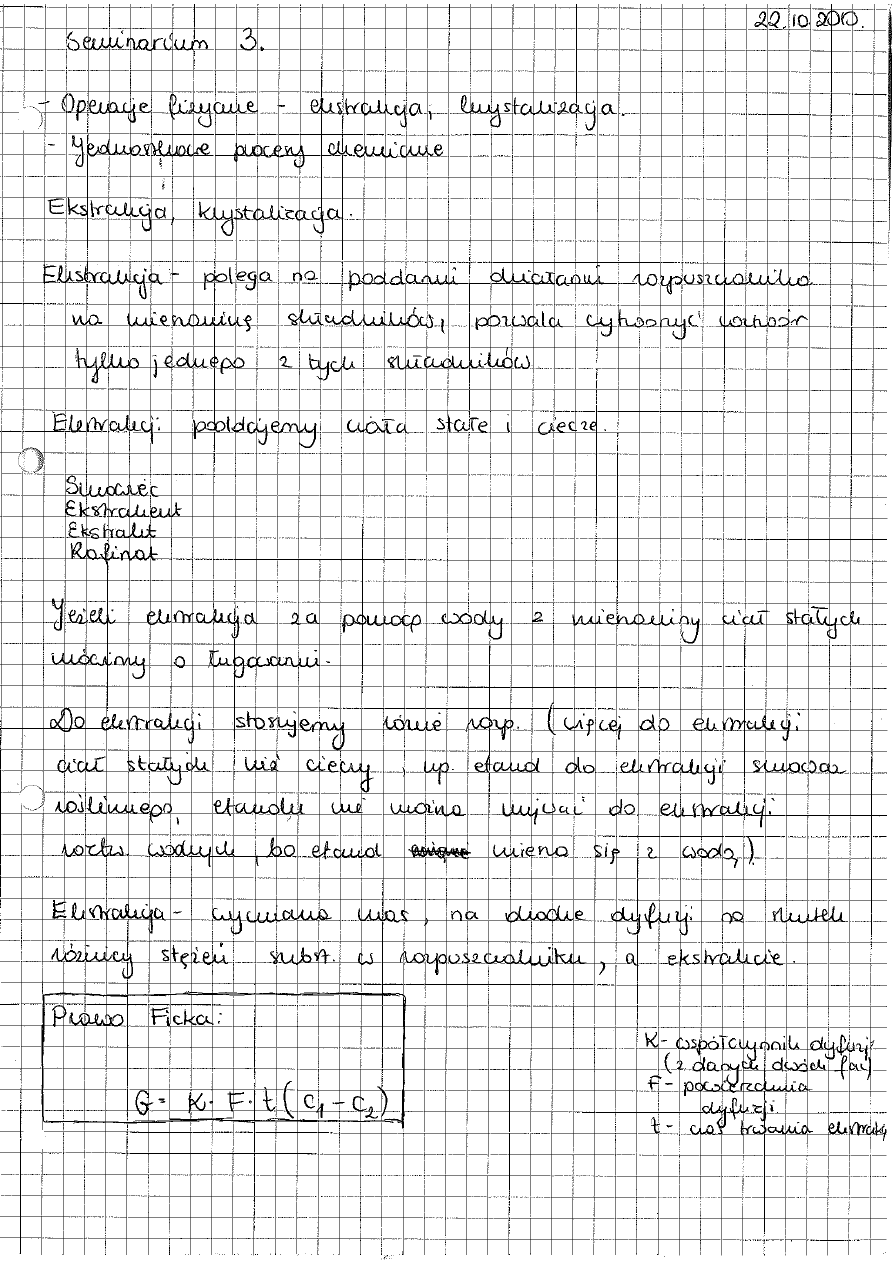 22.10.2010.
Seminarium 3.
- Operacje fizyczne - ekstrakcja, krystalizacja.
- Jednostkowe procesy chemiczne
Ekstrakcja, krystalizacja.
Ekstrakcja - polega na poddaniu działaniu rozpuszczalnika
na mieszaninę składników, pozwala wytworzyć roztwór
tylko jednego z tych składników
Ekstrakcji poddajemy ciała stałe i ciecze.
Surowiec
Ekstrahent
Ekstrakt
Rafinat
Jeżeli ekstrakcja za pomocą wody z mieszaniny ciał stałych
mówimy o ługowaniu.
Do ekstrakcji stosujemy różne rozp. (więcej do ekstrakcji
ciał stałych niż cieczy, np. etanol do ekstrakcji surowca
roślinnego, etanolu nie można używać do ekstrakcji
roztw wodnych, bo etanol miesza się z wodą,)
Ekstrakcja - wymiana mas, na drodze dyfuzji na skutek
różnicy stężeń subst. w rozpuszczalniku, a ekstrakcie.
Prawo Ficka:
G = K · F · t ( C₁ - C₂ )
K - współczynnik dyfuzji
(z danych dwóch faz)
F - powierzchnia
dyfuzji
t - czas trwania ekstrakcj